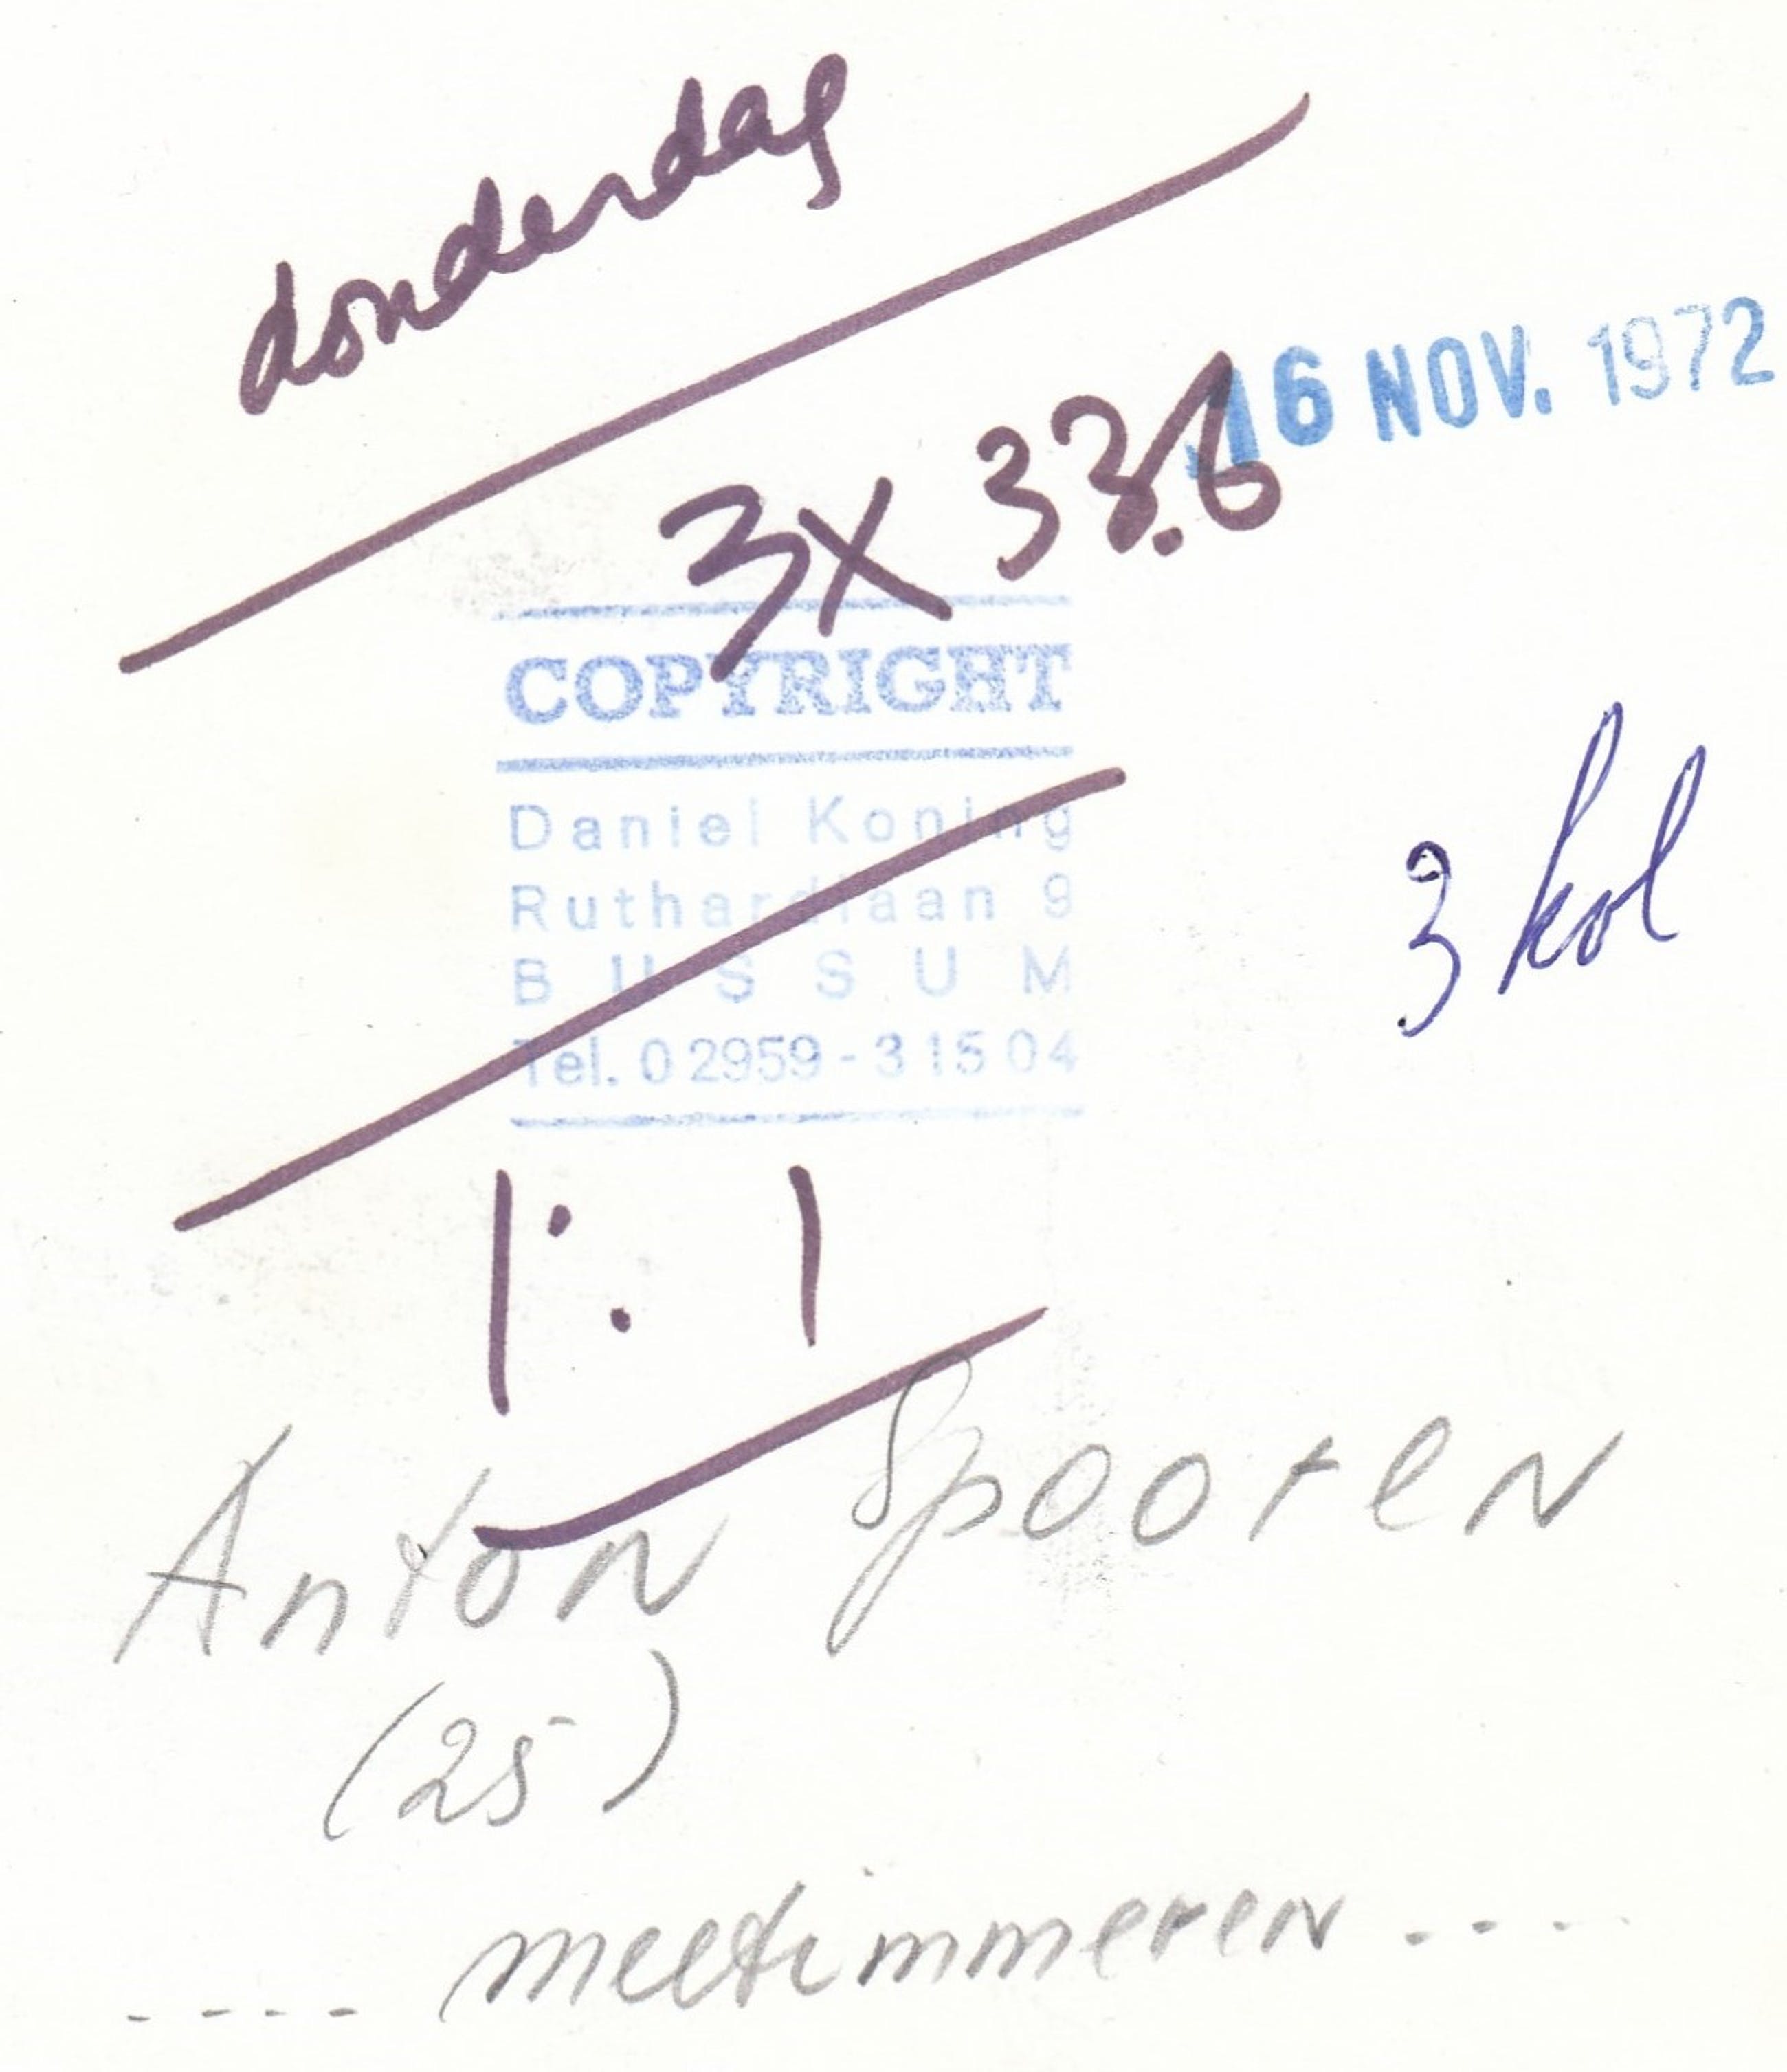 donderdag
16 NOV. 1972
3x 33.6
COPYRIGHT
Daniel Koning
Ruthardlaan 9
BUSSUM
Tel. 02959-31504
3 kol
1:1
Anton Spooren
(25)
.... meetimmeren ....